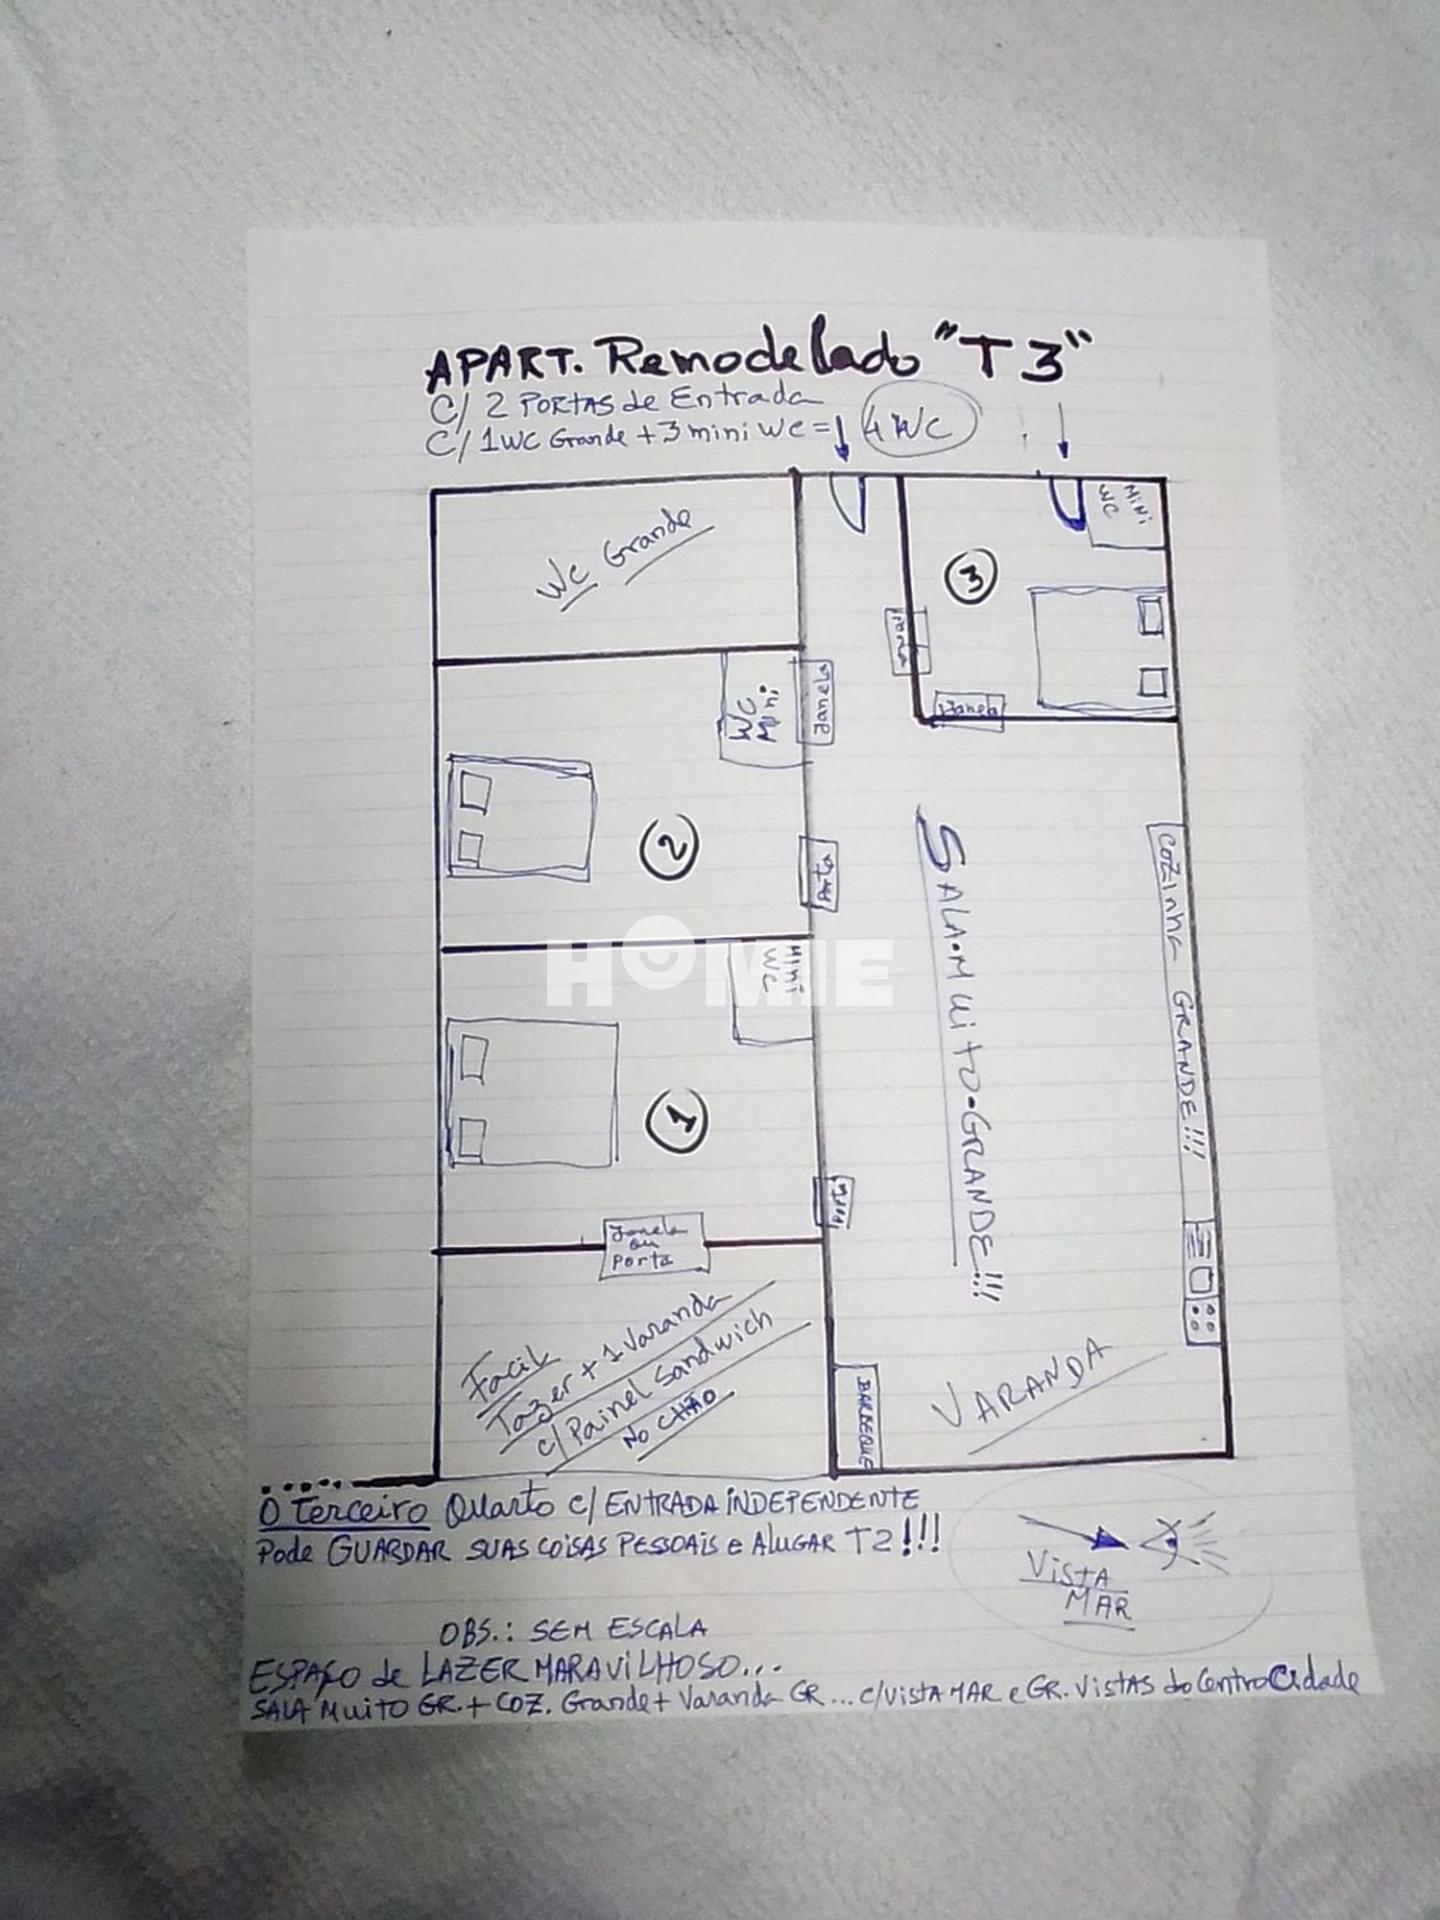 APART. Remodelado "T3"
C/ 2 PORTAS de Entrada
C/ 1WC Grande + 3 mini WC = 4 WC
WC Grande
MiNi
WC
3
Janela
Janela
WC
Mini
Janela
2
Porta
SALA·MUITO·GRANDE!!!
COZinha GRANDE!!!
HOMIE
Mini
WC
1
Porta
Janela
ou
Porta
Facil
Fazer + 1 Varanda
c/ Painel Sandwich
NO CHÃO
BARBEQUE
VARANDA
O Terceiro Quarto c/ ENTRADA INDEPENDENTE
Pode GUARDAR SUAS COISAS PESSOAIS e ALUGAR T2!!!
VISTA
MAR
OBS.: SEM ESCALA
ESPAÇO de LAZER MARAVILHOSO...
SALA MUITO GR. + COZ. Grande + Varanda GR... c/ VISTA MAR e GR. VISTAS do Centro Cidade